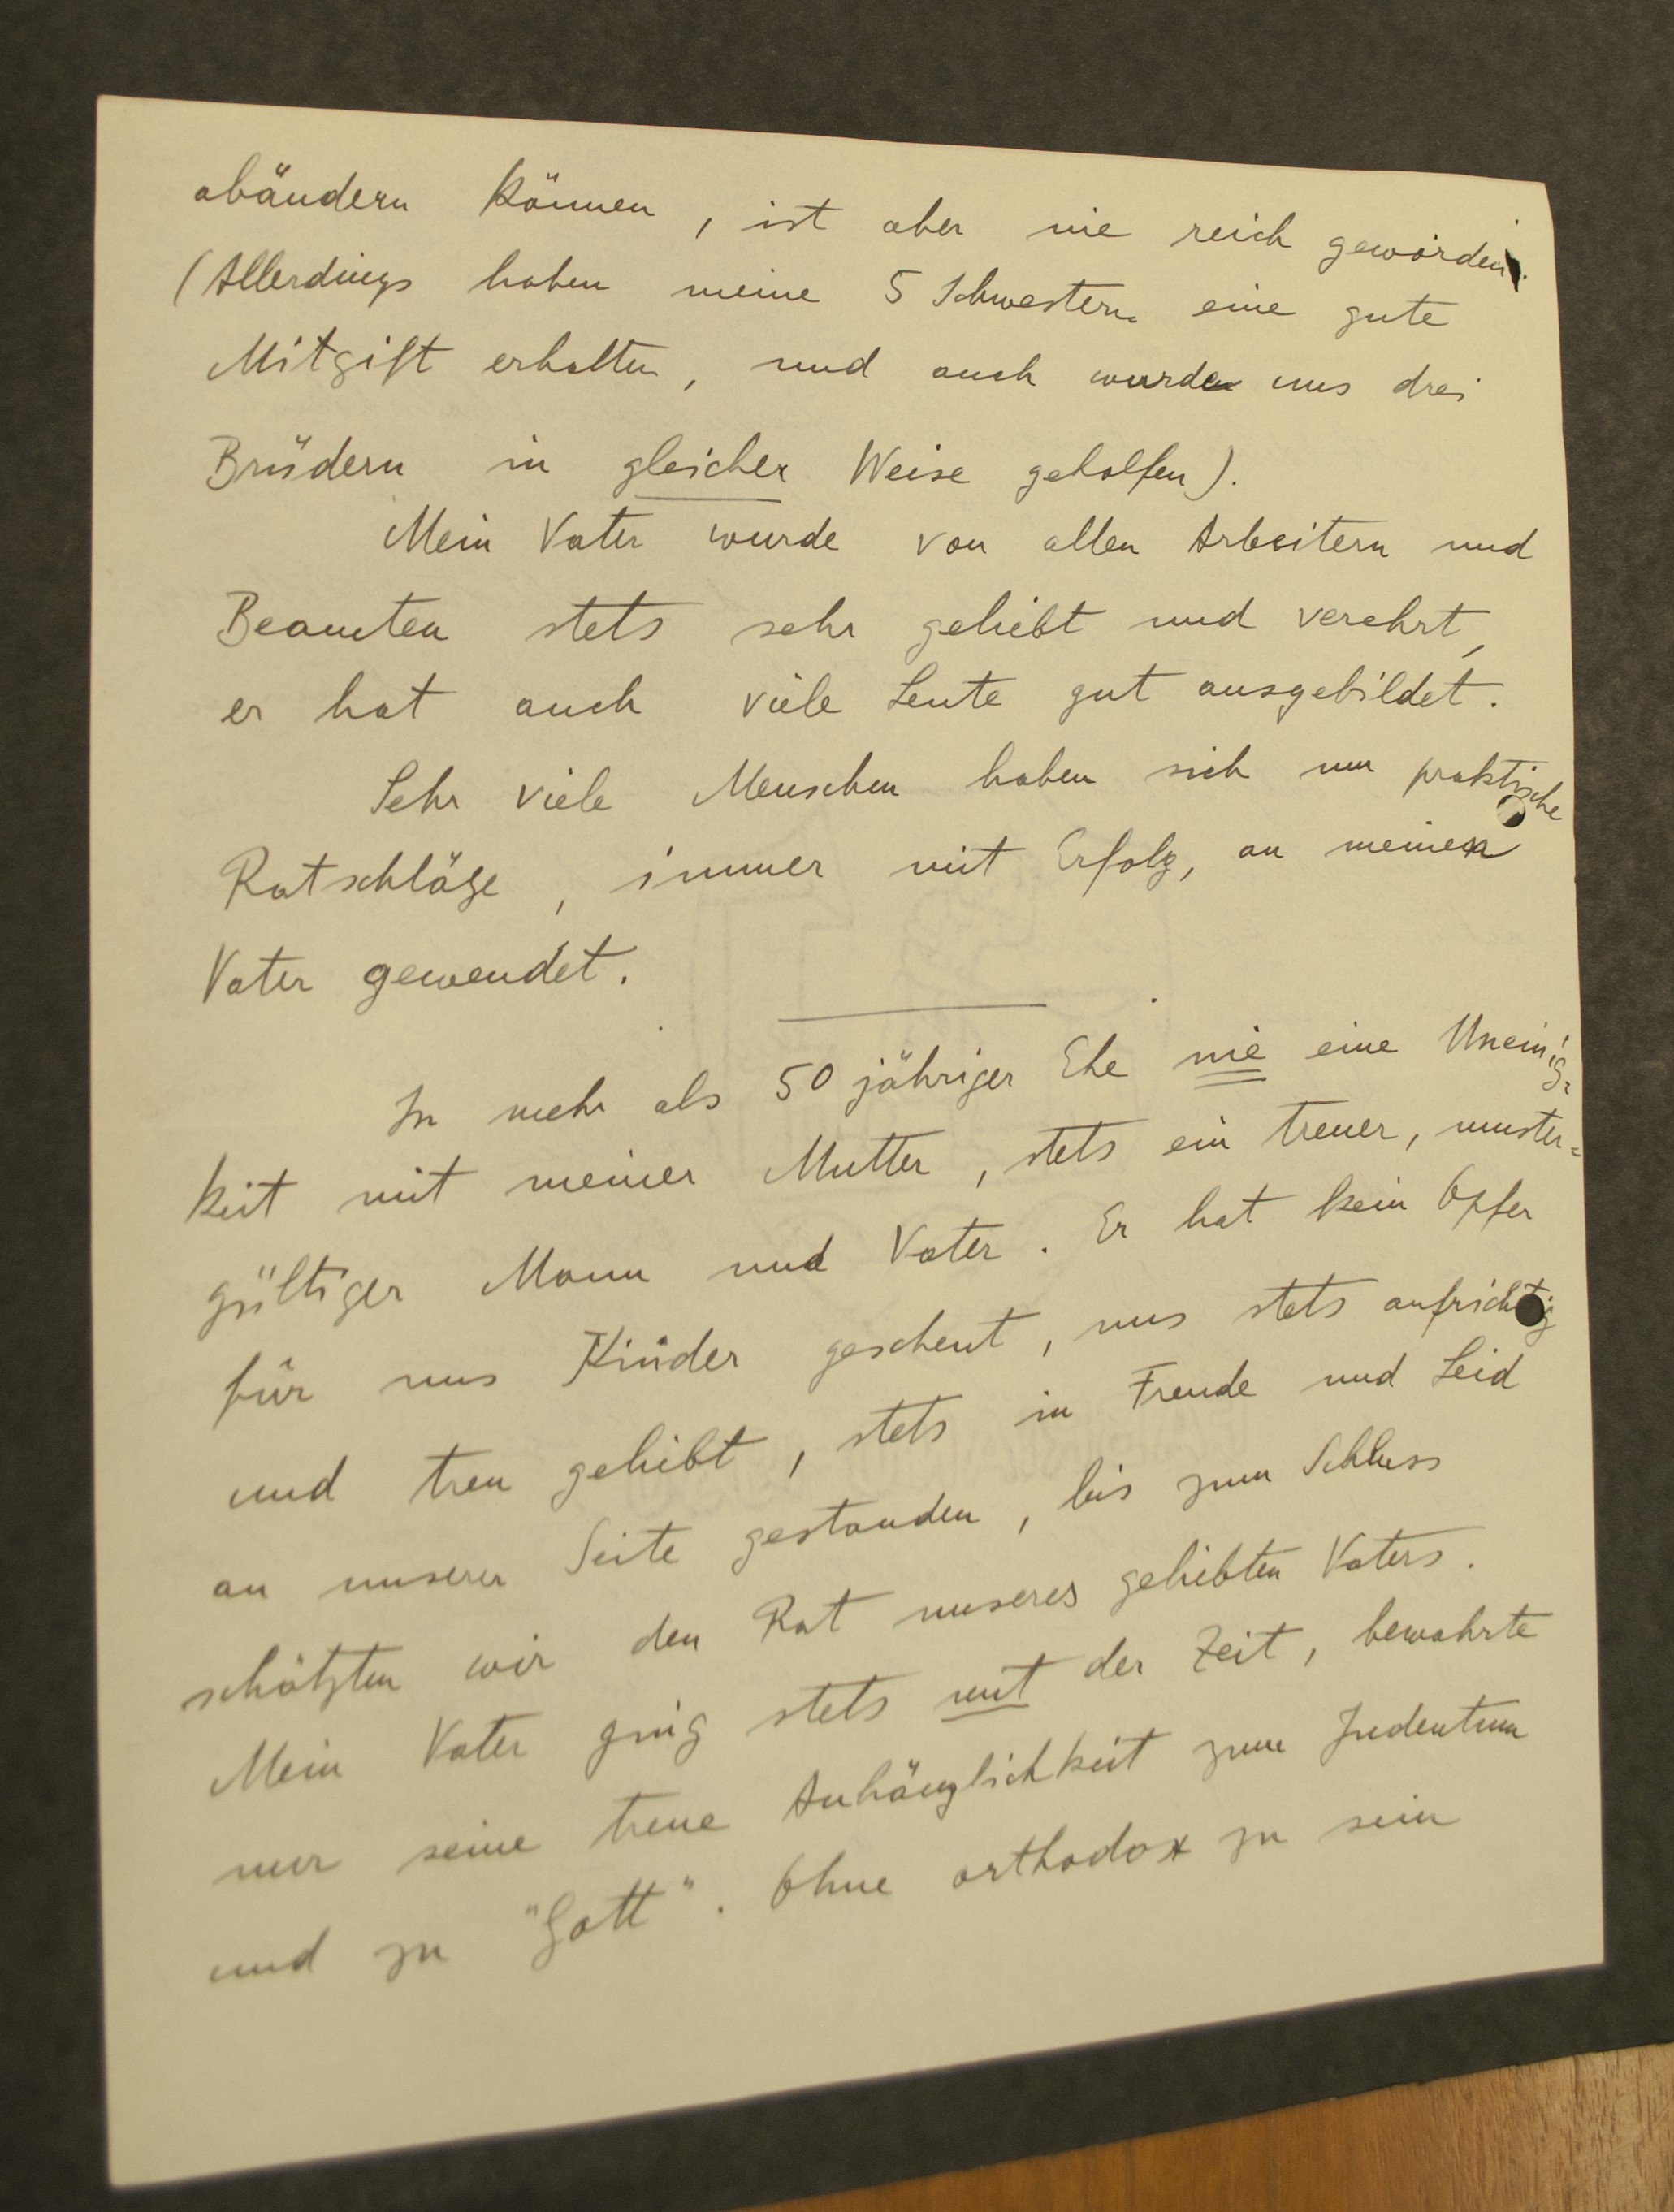 abändern können, ist aber nie reich geworden.
(Allerdings haben meine 5 Schwestern eine gute
Mitgift erhalten, und auch wurde uns drei
Brüdern in gleicher Weise geholfen).
Mein Vater wurde von allen Arbeitern und
Beamten stets sehr geliebt und verehrt,
er hat auch viele Leute gut ausgebildet.
Sehr viele Menschen haben sich um praktische
Ratschläge, immer mit Erfolg, an meinen
Vater gewendet.
In mehr als 50 jähriger Ehe nie eine Uneinig-
keit mit meiner Mutter, stets ein treuer, muster=
gültiger Mann und Vater. Er hat kein Opfer
für uns Kinder gescheut, uns stets aufrichtig
und treu geliebt, stets in Freude und Leid
an unserer Seite gestanden, bis zum Schluss
schätzten wir den Rat unseres geliebten Vaters.
Mein Vater ging stets mit der Zeit, bewahrte
nur seine treue Anhänglichkeit zum Judentum
und zu "Gott". Ohne orthodox zu sein